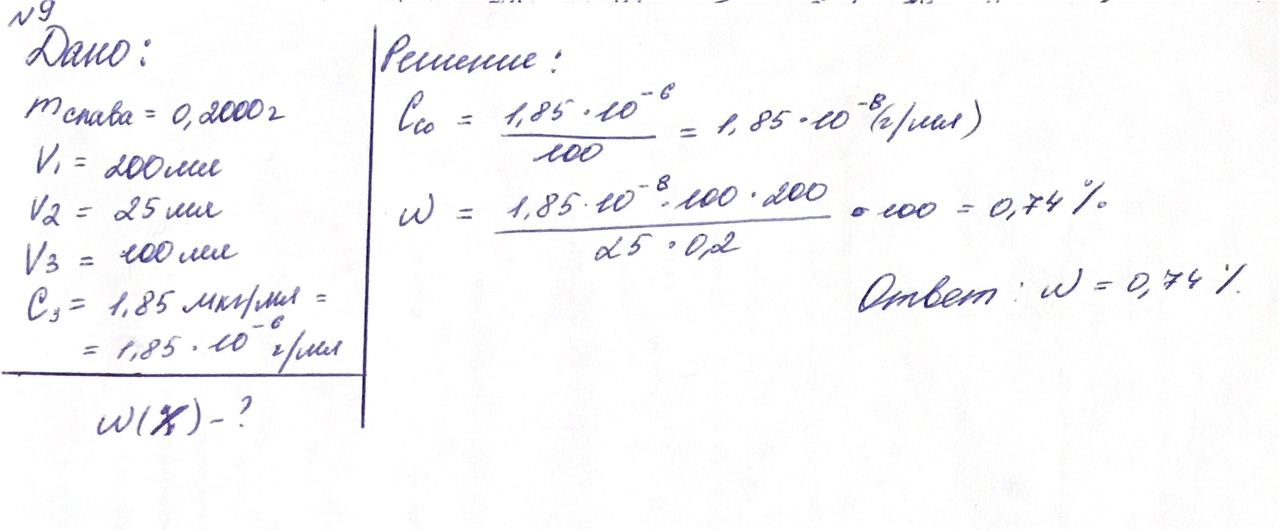 №9
Дано:
mсплава = 0,2000г
V₁ = 200мл
V₂ = 25мл
V₃ = 100мл
C₃ = 1,85 мкг/мл =
= 1,85 · 10⁻⁶ г/мл
ω(X) - ?
Решение:
Cсо = 1,85 · 10⁻⁶ / 100 = 1,85 · 10⁻⁸ (г/мл)
ω = 1,85 · 10⁻⁸ · 100 · 200 / 25 · 0,2 · 100 = 0,74 %
Ответ: ω = 0,74 %.